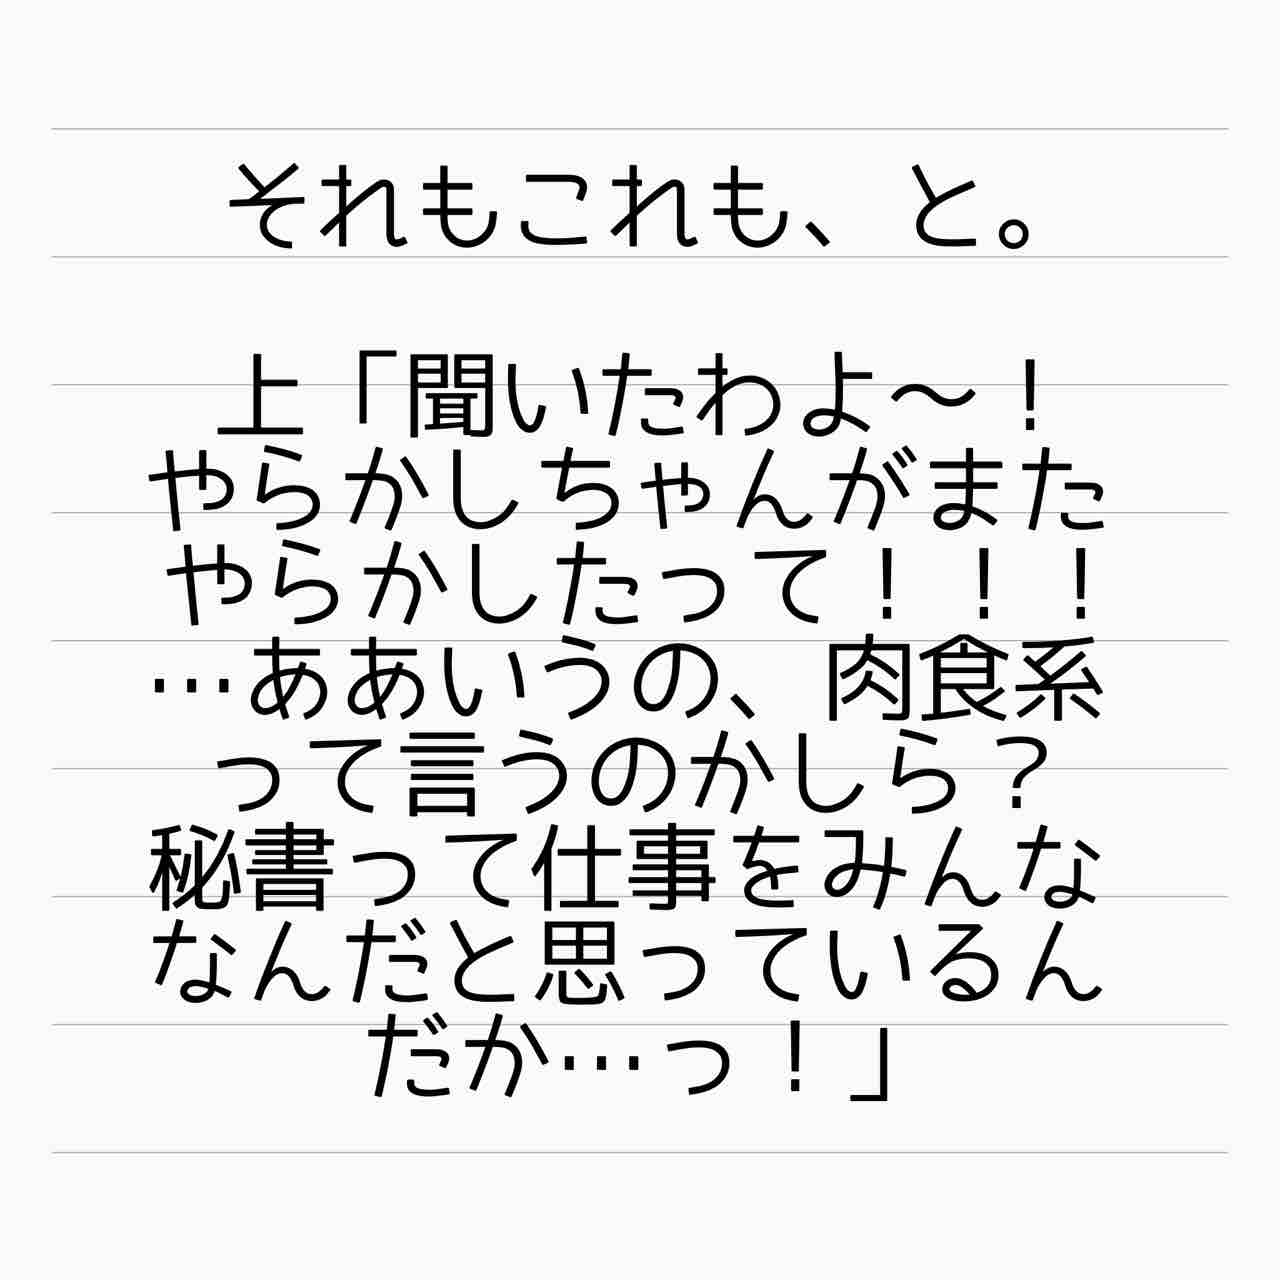 それもこれも、と。
上「聞いたわよ〜！
やらかしちゃんがまた
やらかしたって！！！
…ああいうの、肉食系
って言うのかしら？
秘書って仕事をみんな
なんだと思っているん
だか…っ！」